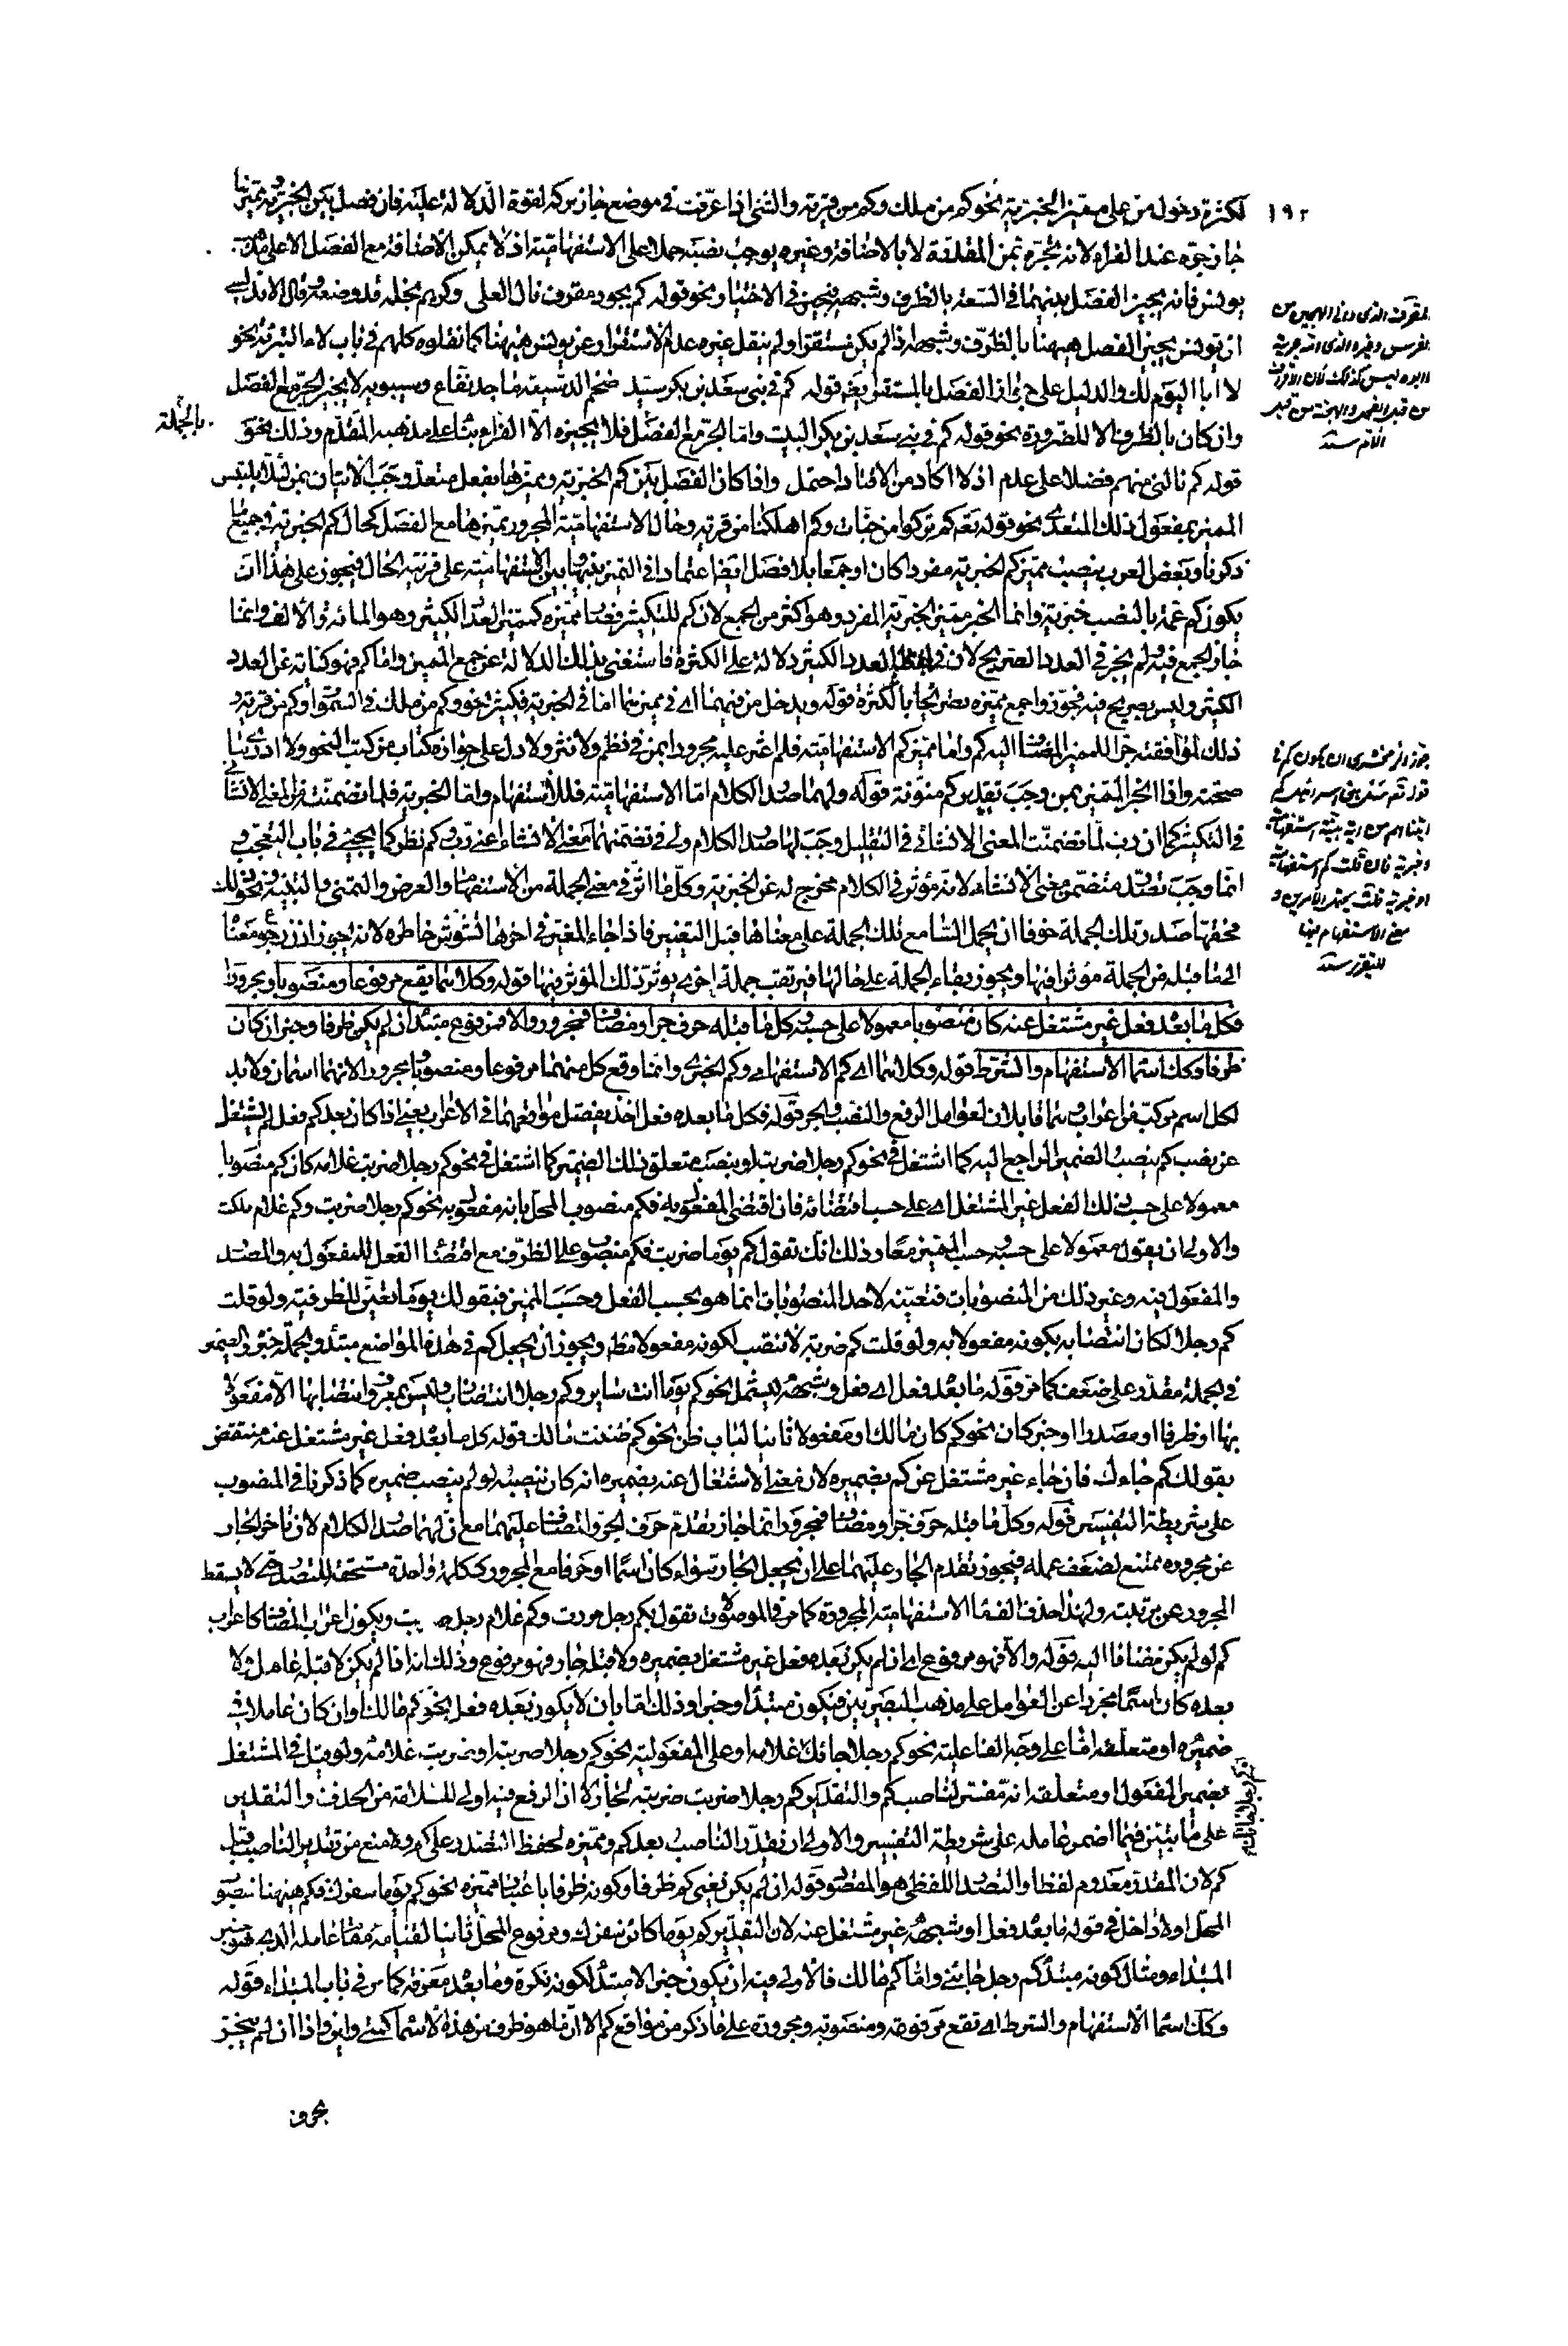 ١٩٢
لكثرة دخول من على مميز الخبرية نحو كم من ملك وكم من قرية والشئ اذا عرف في موضع جاز تركه لقوة الدلالة عليه فان فصل بين الخبرية ومميزها
جاز جره عند الفراء لانه يجره بمن المقدرة لا بالاضافة وغيره يوجب نصبه حملا على الاستفهامية اذ لا يمكن الاضافة مع الفصل الا على مذهب
يونس فانه يجيز الفصل بينهما في السعة بالظرف وشبهه فيجيز في الاختيار نحو قوله كم بجود مقرف نال العلى وكريم بخله قد وضعه وقال الاندلسي
ان يونس يجيز الفصل ههنا بالظرف وشبهه اذا لم يكن مستقرا ولم ينقل غيره عدم الاستقرار عن يونس ههنا كما نقلوه كلهم في باب لاء التبرئة نحو
لا ابا اليوم لك والدليل على جواز الفصل بالمستقر ايضا قوله كم في بني سعد بن بكر سيد ضخم الدسيعة ماجد نفاع وسيبويه لا يجيز الجر مع الفصل
وان كان بالظرف الا للضرورة نحو قوله كم في بني سعد بن بكر البيت واما الجر مع الفصل بالجملة فلا يجيزه الا الفراء بناء على مذهبه المتقدم وذلك نحو
قوله كم نالني منهم فضلا على عدم اذ لا اكاد من الاقتار احتمل واذا كان الفصل بين كم الخبرية ومميزها بفعل متعد وجب الاتيان بمن لئلا يلتبس
المميز بمفعول ذلك المتعدي نحو قوله تع كم تركوا من جنات وكم اهلكنا من قرية وحال الاستفهامية المجرور مميزها مع الفصل كحال كم الخبرية في جميع ما
ذكرنا وبعض العرب ينصب مميز كم الخبرية مفردا كان او جمعا بلا فصل ايضا اعتمادا في التمييز بينها وبين الاستفهامية على قرينة الحال فيجوز على هذا ان
يكون كم عمة بالنصب خبرية وانما الجر مميز الخبرية المفرد وهو اكثر من الجمع لان كم للتكثير فصار مميزه كمميز العدد الكثير وهو المائة والالف وانما
جاز الجمع فيه ولم يجز في العدد الصريح لان في لفظ العدد الكثير دلالة على الكثرة فاستغنى بتلك الدلالة عن جمع المميز واما كم فهو كناية عن العدد
الكثير وليس بصريح فيه فجوزوا جمع مميزه تصريحا بالكثرة قوله ويدخل من فيهما اي في مميزيهما اما في الخبرية فكثير نحو وكم من ملك في السموات وكم من قرية و
ذلك لموافقته جرا للمميز المضاف اليه كم واما مميز كم الاستفهامية فلم اعثر عليه مجرورا بمن في نظم ولا نثر ولا دل على جوازه كتاب من كتب النحو ولا ادري ما
صحته واذا انجر المميز بمن وجب تقدير كم منونة قوله ولهما صدر الكلام اما الاستفهامية فللاستفهام واما الخبرية فلما تضمنت من المعنى الانشائي
في التكثير كما ان رب لما تضمنت المعنى الانشائي في التقليل وجب لها صدر الكلام ولي في تضمنهما معنى الانشاء اعني رب وكم نظر كما يجيء في باب التعجب و
انما وجب تصدر متضمن معنى الانشاء لانه مؤثر في الكلام مخرج له عن الخبرية وكل ما اثر في معنى الجملة من الاستفهام والعرض والتمني والتنبيه ونحو ذلك
فحقها صدر تلك الجملة خوفا ان يحمل السامع تلك الجملة على معناها قبل التغيير فاذا جاء المغير في اخرها تشوش خاطره لانه يجوز ان يرجع معناه
الى ما قبله من الجملة مؤثرا فيها ويجوز بقاء الجملة على حالها فيرتقب جملة اخرى يؤثر ذلك المؤثر فيها قوله وكلاهما يقع مرفوعا ومنصوبا ومجرورا
فكل ما بعده فعل غير مشتغل عنه كان منصوبا معمولا على حسبه وكل ما قبله حرف جر او مضاف فمجرور والا فمرفوع مبتدأ ان لم يكن ظرفا وخبر ان كان
ظرفا وكذلك اسماء الاستفهام والشرط قوله وكلاهما اي كم الاستفهامي وكم الخبري وانما وقع كل منهما مرفوعا ومنصوبا ومجرورا لانهما اسمان ولا بد
لكل اسم مركب من اعراب وهما قابلان لعوامل الرفع والنصب والجر قوله فكل ما بعده فعل اخذ يفصل مواقعهما في الاعراب يعني اذا كان بعد كم فعل لم يشتغل
عن نصب كم بنصب الضمير الراجع اليه كما اشتغل في نحو كم رجلا ضربته او بنصب متعلق ذلك الضمير كما اشتغل في نحو كم رجلا ضربت غلامه كان كم منصوبا
معمولا على حسب ذلك الفعل غير المشتغل اي على حسب اقتضائه فان اقتضى المفعول به فكم منصوب المحل بانه مفعول به نحو كم رجلا ضربت وكم غلام ملكت
والاولى ان يقول معمولا على حسبه وحسب المميز معا وذلك انك تقول كم يوما ضربت فكم منصوب على الظرف مع اقتضاء الفعل للمفعول به والمصدر
والمفعول فيه وغير ذلك من المنصوبات فتعينه لاحد المنصوبات انما هو بحسب الفعل وحسب المميز فبقولك يوما تعين للظرفية ولو قلت
كم رجلا لكان انتصابه بكونه مفعولا به ولو قلت كم ضربة لانتصب لكونه مفعولا مطلقا ويجوز ان يجعل كم في هذه المواضع مبتدأ والجملة خبره والضمير
في الجملة مقدر على ضعف كما مر قوله ما بعده فعل اي فعل وشبهه ليشمل نحو كم يوما انت ساير وكم رجلا انت ضارب وليس بمعرف وانتصابها الا مفعولا
بها او ظرفا او مصدرا او خبر كان نحو كم كان مالك او مفعولا ثانيا لباب ظن نحو كم ظننت مالك قوله كل ما بعده فعل غير مشتغل عنه منتقض
بقولك كم جاءك فان جاء غير مشتغل عن كم بضميره لان معنى الاشتغال عنه بضميره انه كان ينصبه لو لم ينصب ضميره كما ذكرنا في المنصوب
على شريطة التفسير قوله وكل ما قبله حرف جر او مضاف فمجرور انما جاز تقدم حرف الجر والمضاف عليهما مع ان لهما صدر الكلام لان تاخر الجار
عن مجروره ممتنع لضعف عمله فيجوز تقدم الجار عليهما على ان يجعل الجار سواء كان اسما او حرفا مع المجرور ككلمة واحدة مستحقة للتصدر حتى لا يسقط
المجرور عن مرتبته ولهذا حذف الف ما الاستفهامية المجرورة كما مر في الموصولات تقول بكم رجل مررت وكم غلام رجل ضربت ويكون اعراب المضاف كاعراب
كم لو لم يكن مضافا اليه قوله والا فهو مرفوع اي ان لم يكن بعده فعل غير مشتغل بضميره ولا قبله جار فهو مرفوع وذلك انه اذا لم يكن لا قبله عامل ولا
بعده كان اسما مجردا عن العوامل على مذهب البصريين فيكون مبتدأ او خبرا وذلك اما بان لا يكون بعده فعل نحو كم مالك او ان كان عاملا في
ضميره او متعلقه اما على وجه الفاعلية نحو كم رجلا جائك غلامه او على المفعولية نحو كم رجلا ضربته او ضربت غلامه ولو قيل في المشتغل
بضمير المفعول او متعلقه انه مفسر لناصب كم والتقدير كم رجلا ضربت ضربته لجاز الا ان الرفع فيه اولى للسلامة من الحذف والتقدير
على ما تبين فيما اضمر عامله على شريطة التفسير والاولى ان يقدر الناصب بعد كم ومميزه لحفظ التصدر على كم ولا منع من تقدير الناصب قبل
كم لان المقدر معدوم لفظا والتصدر اللفظي هو المقصود قوله ان لم يكن يعني كم ظرفا وكونه ظرفا باعتبار مميزه نحو كم يوما سفرك فكم ههنا منصوب
المحل اولا داخل في قوله ما بعده فعل او شبهه غير مشتغل عنه لان التقدير كم يوما كائن سفرك ومرفوع المحل ثانيا لقيامه مقام عامله الذي هو خبر
المبتداء ومثال كونه مبتدأ كم رجل جائني واما كم مالك فالاولى فيه ان يكون خبرا لا مبتدأ لكونه نكرة وما بعده معرفة كما مر في باب المبتداء قوله
وكذلك اسماء الاستفهام والشرط اي تقع مرفوعة ومنصوبة ومجرورة على ما ذكر من مواقع كم الا ان ما هو ظرف من هذه الاسماء كمتى واين واذا ان لم ينجر
بحرف